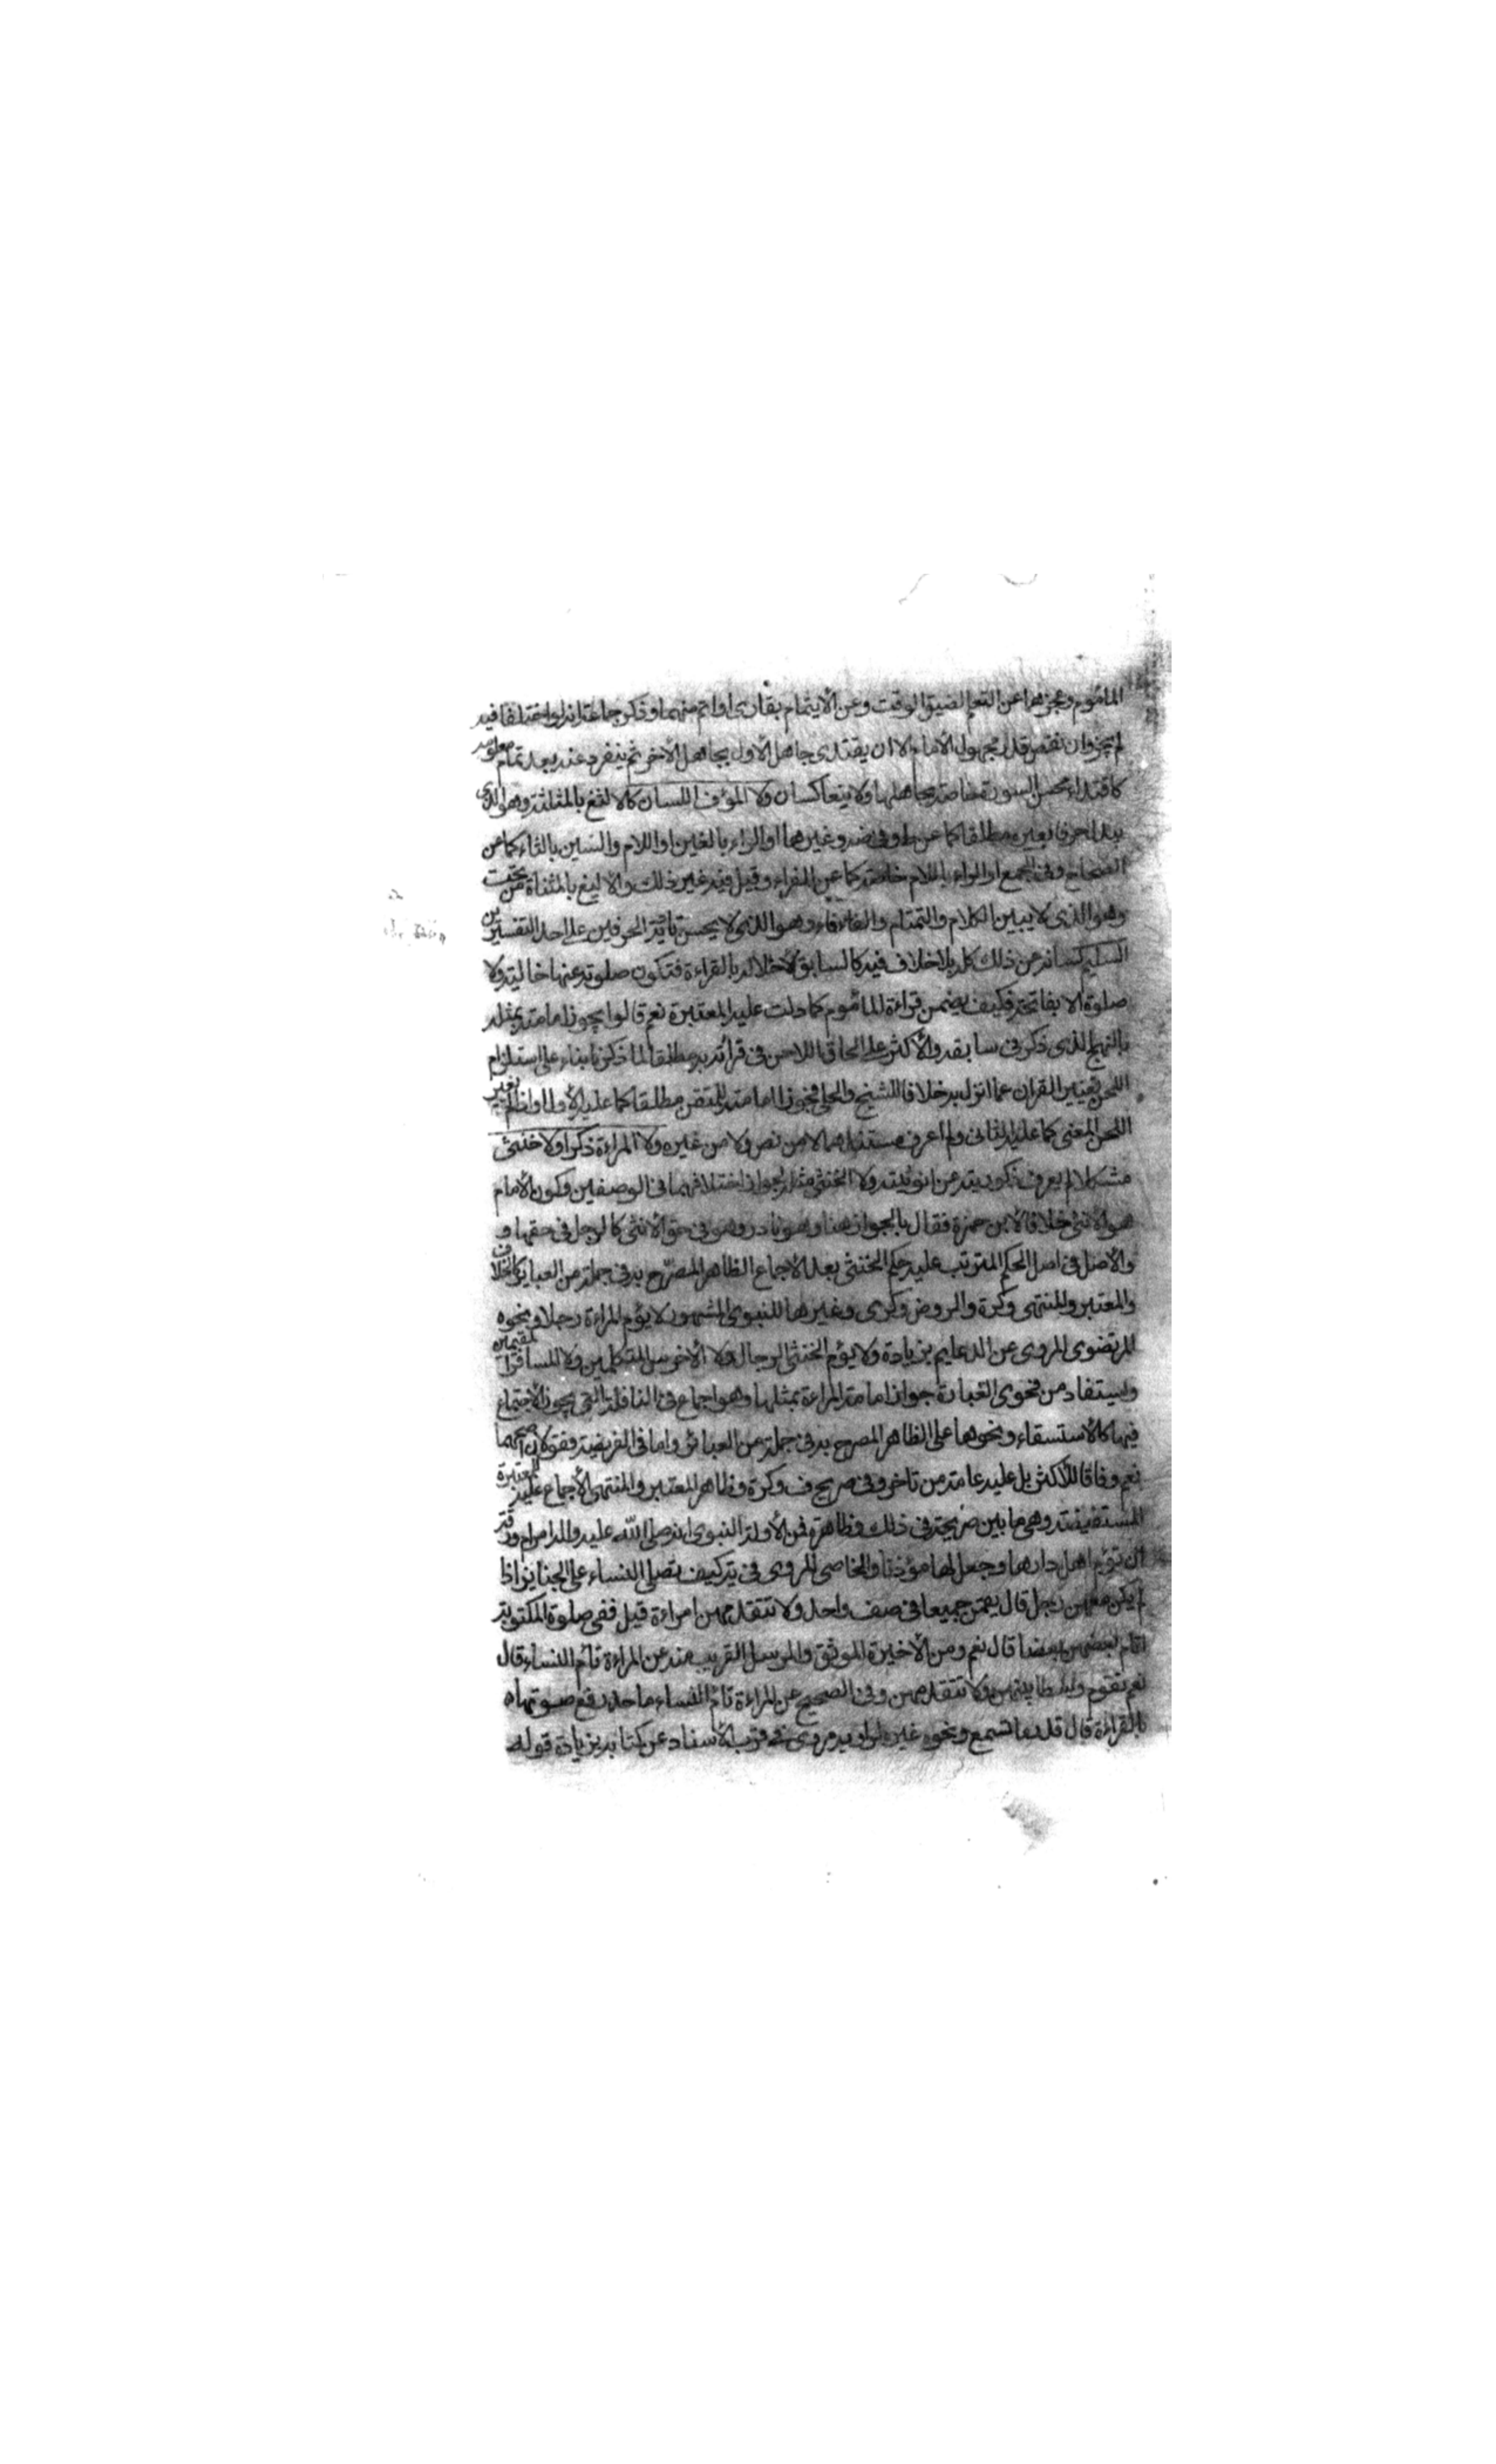 المأموم وعجزهما عن التعلم لضيق الوقت وعن الايتمام بقارئ او اتم منهما وذكر جماعة انه لو اختلفا فيه
لم يجز وان نقص قدر مجهول الامام الا ان يقتدى جاهل الاول بجاهل الاخر ثم ينفرد عنه بعد تمام معلومه
كاقتداء محسن السورة خاصة بجاهلها ولا يتعاكسان ولا المؤف اللسان كالالثغ بالمثلثة وهو الذى
يبدل حرفا بغيره مطلقا كما عن ط وفى ضه وغيرهما او الراء بالغين او اللام والسين بالثاء كما عن
الصحاح وفى المجمع او الراء باللام خاصة كما عن الفراء وقيل فيه غير ذلك والاليغ بالمثناة من تحت
وهو الذى لا يبين الكلام والتمتام والفافاء وهو الذى لا يحسن تادية الحرفين على احد التفسيرين
السليم لسانه من ذلك كله بلا خلاف فيه كالسابق لاخلاله بالقراءة فتكون صلوته عنها خالية ولا
صلوة الا بفاتحة فكيف يضمن قراءة المأموم كما دلت عليه المعتبرة نعم قالوا يجوز امامته بمثله
بالنهج الذى ذكر فى سابقه والأكثر على الحاق اللاحن فى قرائته به مطلقا لما ذكرنا بناء على استلزام
اللحن تغيير القران عما انزل به خلافا للشيخ والحلى فجوزا امامته للمتقن مطلقا كما عليه الأول او اذا لم يغير
اللحن المعنى كما عليه الثانى ولم اعرف مستندهما لا من نص ولا من غيره ولا المراءة ذكرا ولا خنثى
مشكلا لم يعرف ذكوريته من انوثيته ولا الخنثى مثله لجواز اختلافهما فى الوصفين وكون الأمام
هو الانثى خلافا لابن حمزة فقال بالجواز هنا وهو نادر وهو فى حق الانثى كالرجل فى حقها و
والأصل فى اصل الحكم المترتب عليه حكم الخنثى بعد الاجماع الظاهر المصرّح به فى جملة من العباير كالخلاف
والمعتبر والمنتهى وكرة والروض وكرى وغيرها للنبوى المشهور لا يؤم المراءة رجلا ونحوه
المرتضوى المروى عن الدعايم بزيادة ولا يؤم الخنثى الرجال ولا الأخرس المتكلمين ولا المسافر المقيمين
ويستفاد من فحوى العبارة جواز امامة المراءة بمثلها وهو اجماع فى النافلة التى يجوز الاجتماع
فيها كالأستسقاء ونحوها على الظاهر المصرح به فى جملة من العبائر واما فى الفريضة فقولان اصحهما
نعم وفاقا للأكثر بل عليه عامة من تاخر وفى صريح ف وكرة وظاهر المعتبر والمنتهى الأجماع عليه للمعتبرة
المستفيضة وهى ما بين صريحة فى ذلك وظاهرة فمن الأولة النبوى انه صلى الله عليه واله امر ام ورقة
ان تؤم اهل دارها وجعل لها مؤذنا والخاصى المروى فى يه كيف تصلى النساء على الجنايز اذا
لم يكن معهن رجل قال يقمن جميعا فى صف واحد ولا تتقدمهن امراءة قيل ففى صلوة المكتوبة
ايؤم بعضهن بعضا قال نعم ومن الأخيرة الموثق والمرسل القريب منه عن المراءة تام النساء قال
نعم تقوم وسطا بينهن ولا تتقدمهن وفى الصحيح عن المراءة تام النساء ما حد رفع صوتها
بالقراءة قال قدر ما تسمع ونحوه غيره المروى فى قرب الأسناد عن كتابه بزيادة قوله